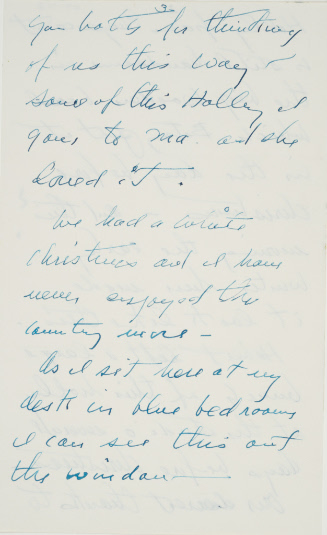 3
you both for thinking
of us this way –
some of this Holley I
gave to Ma. and she
loved it.
We had a white
christmas and I have
never enjoyed the
country more –
As I sit here at my
desk in blue bedroom
I can see this out
the window –